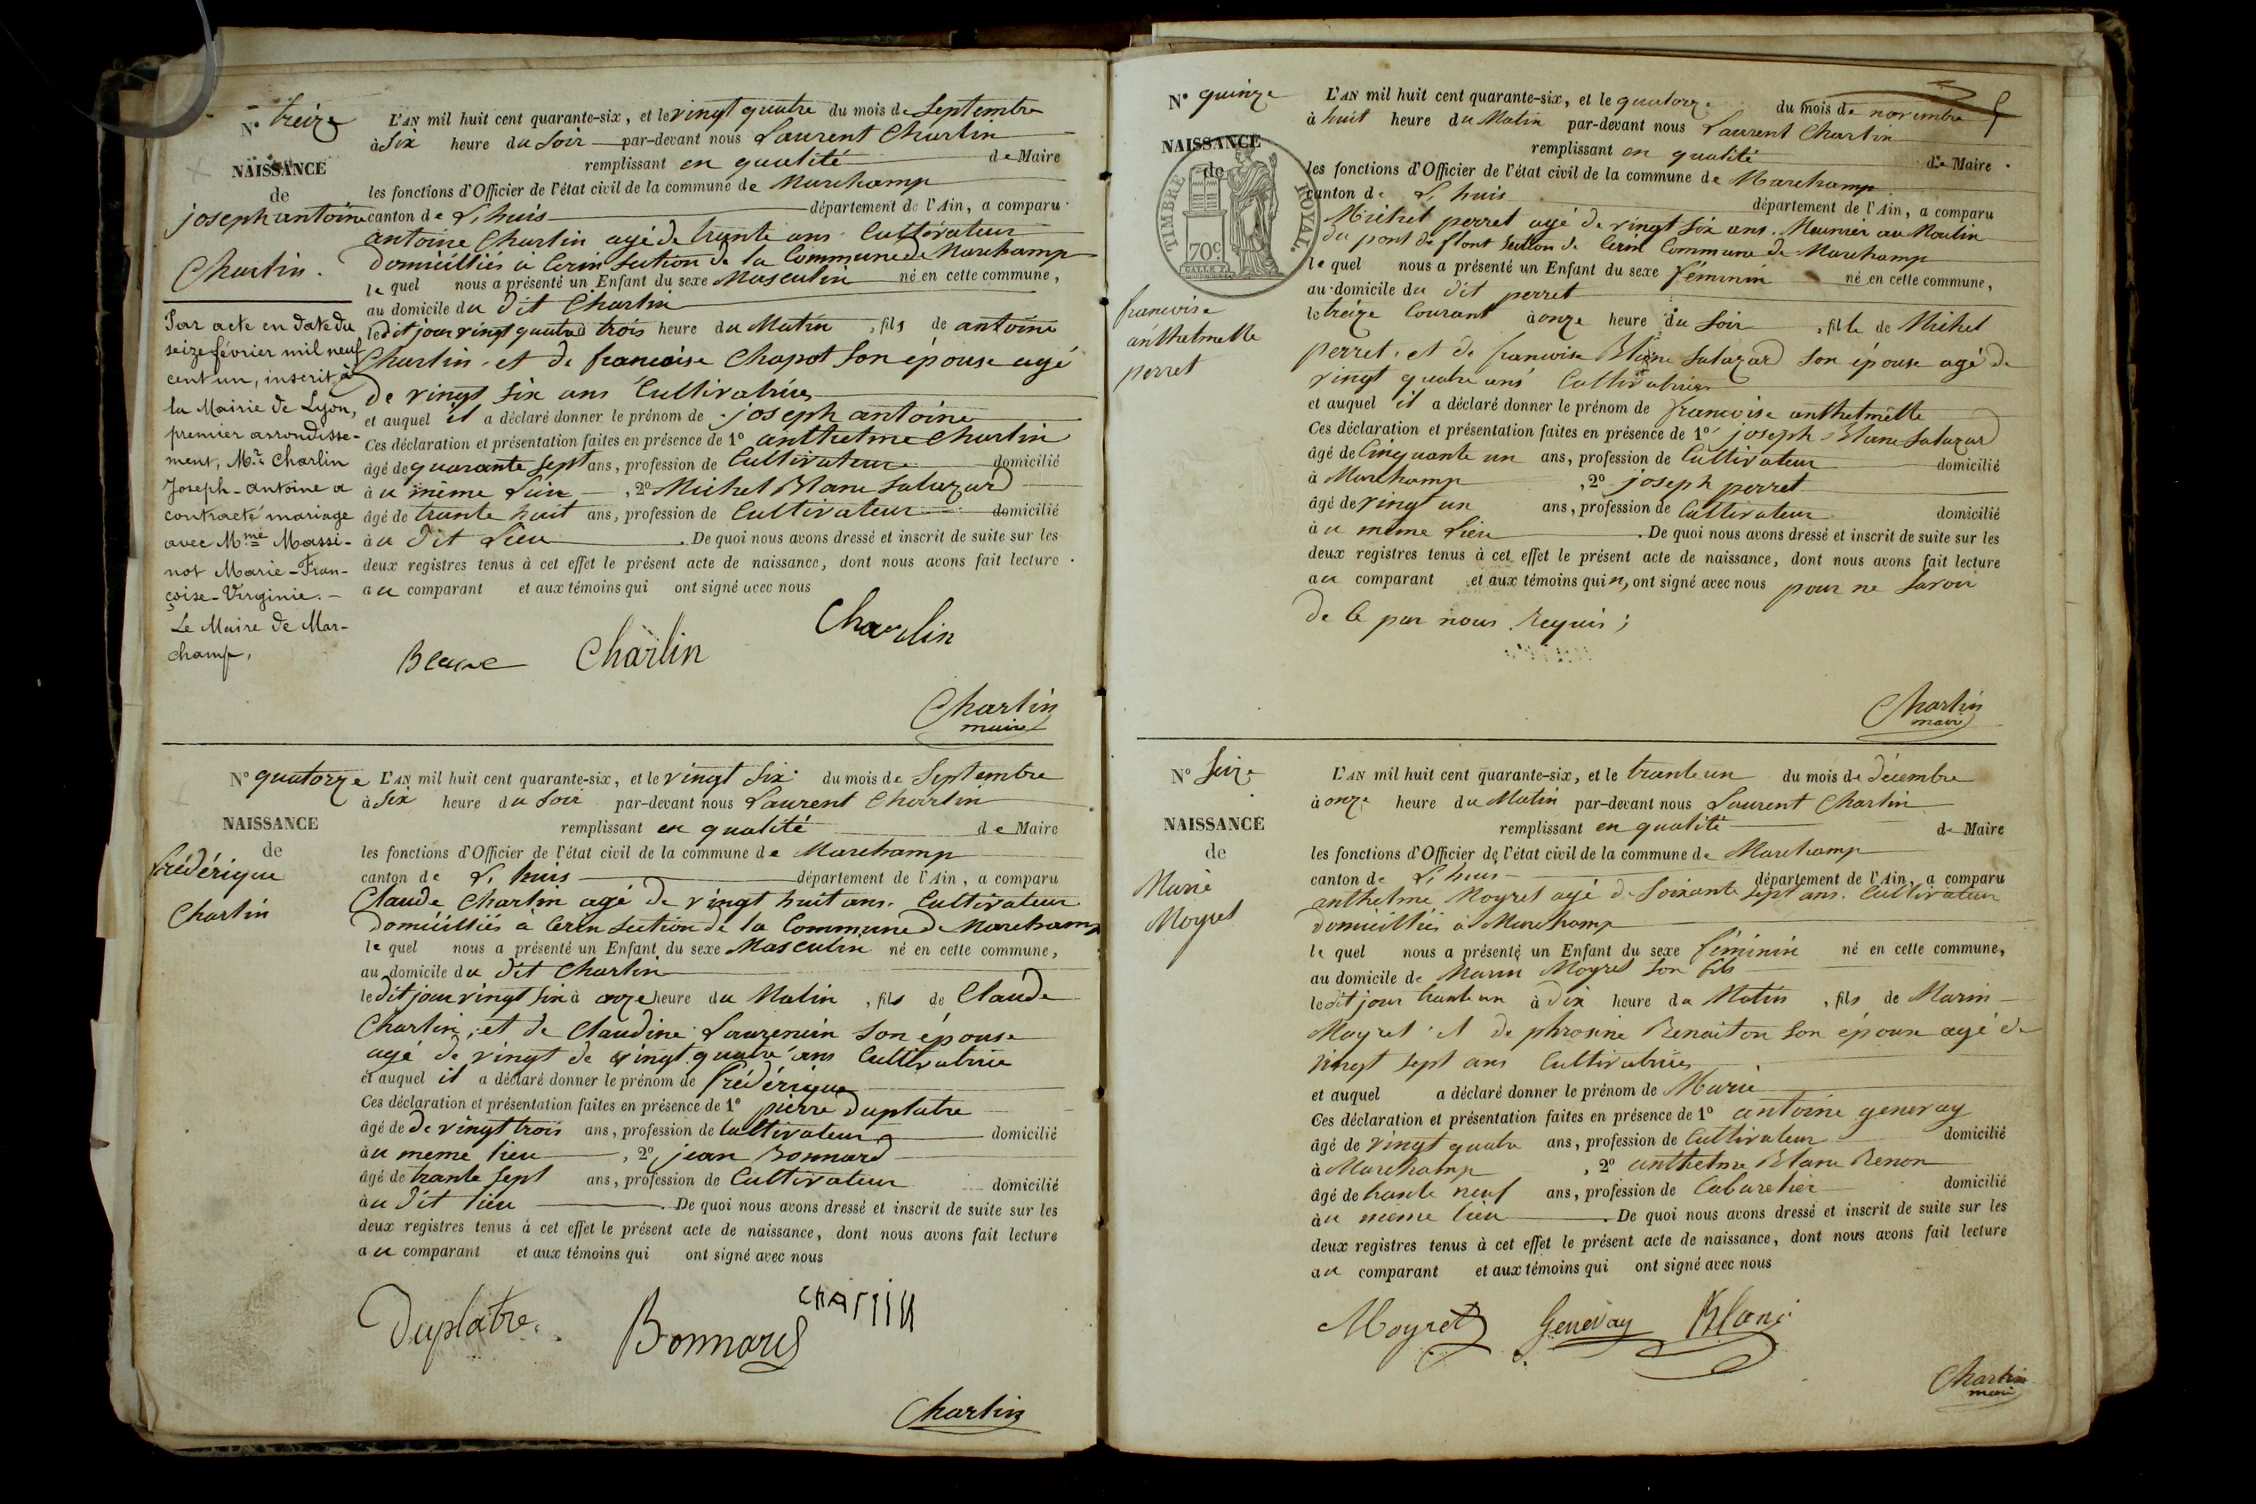 N° treize
NAISSANCE
de
joseph antoine
Charlin.
Par acte en date du
seize février mil neuf
cent un, inscrit à
la Mairie de Lyon,
premier arrondisse-
ment, Mr. Charlin
Joseph-Antoine a
contracté mariage
avec Mme Massi-
not Marie-Fran-
çoise-Virginie.-
Le Maire de Mar-
champ,
L'AN mil huit cent quarante-six, et le vingt quatre du mois de Septembre
à Six heure du Soir par-devant nous Laurent Charlin
remplissant en qualité de Maire
les fonctions d'Officier de l'état civil de la commune de Marchamp
canton de L'huis département de l'Ain, a comparu
antoine Charlin agé de trante ans Cultivateur
domiciliés à Cerin Section de la Commune de Marchamp
le quel nous a présenté un Enfant du sexe Masculin né en cette commune,
au domicile du dit Charlin
le dit jour vingt quatre à trois heure du Matin, fils de antoine
Charlin et de francoise Chapot Son épouse agé
de vingt six ans Cultivatrice
et auquel il a déclaré donner le prénom de joseph antoine
Ces déclaration et présentation faites en présence de 1° anthelme Charlin
âgé de quarante sept ans, profession de Cultivateur domicilié
à u même Lieu, 2° Michel Blanc Salazard
âgé de trante huit ans, profession de Cultivateur domicilié
à u dit Lieu. De quoi nous avons dressé et inscrit de suite sur les
deux registres tenus à cet effet le présent acte de naissance, dont nous avons fait lecture
au comparant et aux témoins qui ont signé avec nous
Blanc Charlin Charlin
Charlin
maire
N° quatorze
NAISSANCE
de
frédérique
Charlin
L'AN mil huit cent quarante-six, et le vingt six du mois de Septembre
à Six heure du Soir par-devant nous Laurent Charlin
remplissant en qualité de Maire
les fonctions d'Officier de l'état civil de la commune de Marchamp
canton de L'huis département de l'Ain, a comparu
Claude Charlin agé de vingt huit ans. Cultivateur
domiciliés à Cerin Section de la Commune de Marchamp
le quel nous a présenté un Enfant du sexe Masculin né en cette commune,
au domicile du dit Charlin
le dit jour vingt six à onze heure du Matin, fils de Claude
Charlin, et de Claudine Laurencin Son épouse
agé de vingt de vingt quatre ans Cultivatrice
et auquel il a déclaré donner le prénom de frédérique
Ces déclaration et présentation faites en présence de 1° pierre Duplatre
âgé de de vingt trois ans, profession de Cultivateur domicilié
à u meme lieu, 2° jean Bonnard
âgé de trante sept ans, profession de Cultivateur domicilié
à u dit lieu. De quoi nous avons dressé et inscrit de suite sur les
deux registres tenus à cet effet le présent acte de naissance, dont nous avons fait lecture
au comparant et aux témoins qui ont signé avec nous
Duplatre. Bonnard CHArliN
Charlin
N° quinze
NAISSANCE
de
TIMBRE ROYAL.
70c.
francoise
anthelmette
perret
L'AN mil huit cent quarante-six, et le quatorze du mois de novembre
à huit heure du Matin par-devant nous Laurent Charlin
remplissant en qualité de Maire
les fonctions d'Officier de l'état civil de la commune de Marchamp
canton de L'huis département de l'Ain, a comparu
Michel perret agé de vingt six ans. Meunier au Moulin
du pont de flont Section de Cerin Commune de Marchamp
le quel nous a présenté un Enfant du sexe féminin né en cette commune,
au domicile du dit perret
le treize Courant à onze heure du Soir, fille de Michel
perret, et de francoise Blanc Salazard Son épouse agé de
vingt quatre ans Cultivatrice
et auquel il a déclaré donner le prénom de francoise anthelmette
Ces déclaration et présentation faites en présence de 1° joseph Blanc Salazard
âgé de Cinquante un ans, profession de Cultivateur domicilié
à Marchamp, 2° joseph perret
âgé de vingt un ans, profession de Cultivateur domicilié
à u même Lieu. De quoi nous avons dressé et inscrit de suite sur les
deux registres tenus à cet effet le présent acte de naissance, dont nous avons fait lecture
au comparant et aux témoins qui n, ont signé avec nous pour ne Savoir
de Ce par nous Requis;
Charlin
maire
N° Seize
NAISSANCE
de
Marie
Moyret
L'AN mil huit cent quarante-six, et le trante un du mois de décembre
à onze heure du Matin par-devant nous Laurent Charlin
remplissant en qualité de Maire
les fonctions d'Officier de l'état civil de la commune de Marchamp
canton de L'huis département de l'Ain, a comparu
anthelme Moyret agé de Soixante sept ans. Cultivateur
domiciliés à Marchamp
le quel nous a présenté un Enfant du sexe féminin né en cette commune,
au domicile de Marin Moyret Son fils
le dit jour trante un à dix heure du Matin, fils de Marin
Moyret et de phrosine Benaiton Son épouse agé de
vingt sept ans Cultivatrice
et auquel a déclaré donner le prénom de Marie
Ces déclaration et présentation faites en présence de 1° antoine genevay
âgé de vingt quatre ans, profession de Cultivateur domicilié
à Marchamp, 2° anthelme Blanc Benon
âgé de trante neuf ans, profession de Cabaretier domicilié
à u meme lieu. De quoi nous avons dressé et inscrit de suite sur les
deux registres tenus à cet effet le présent acte de naissance, dont nous avons fait lecture
au comparant et aux témoins qui ont signé avec nous
Moyret Genevay Blanc
Charlin
maire